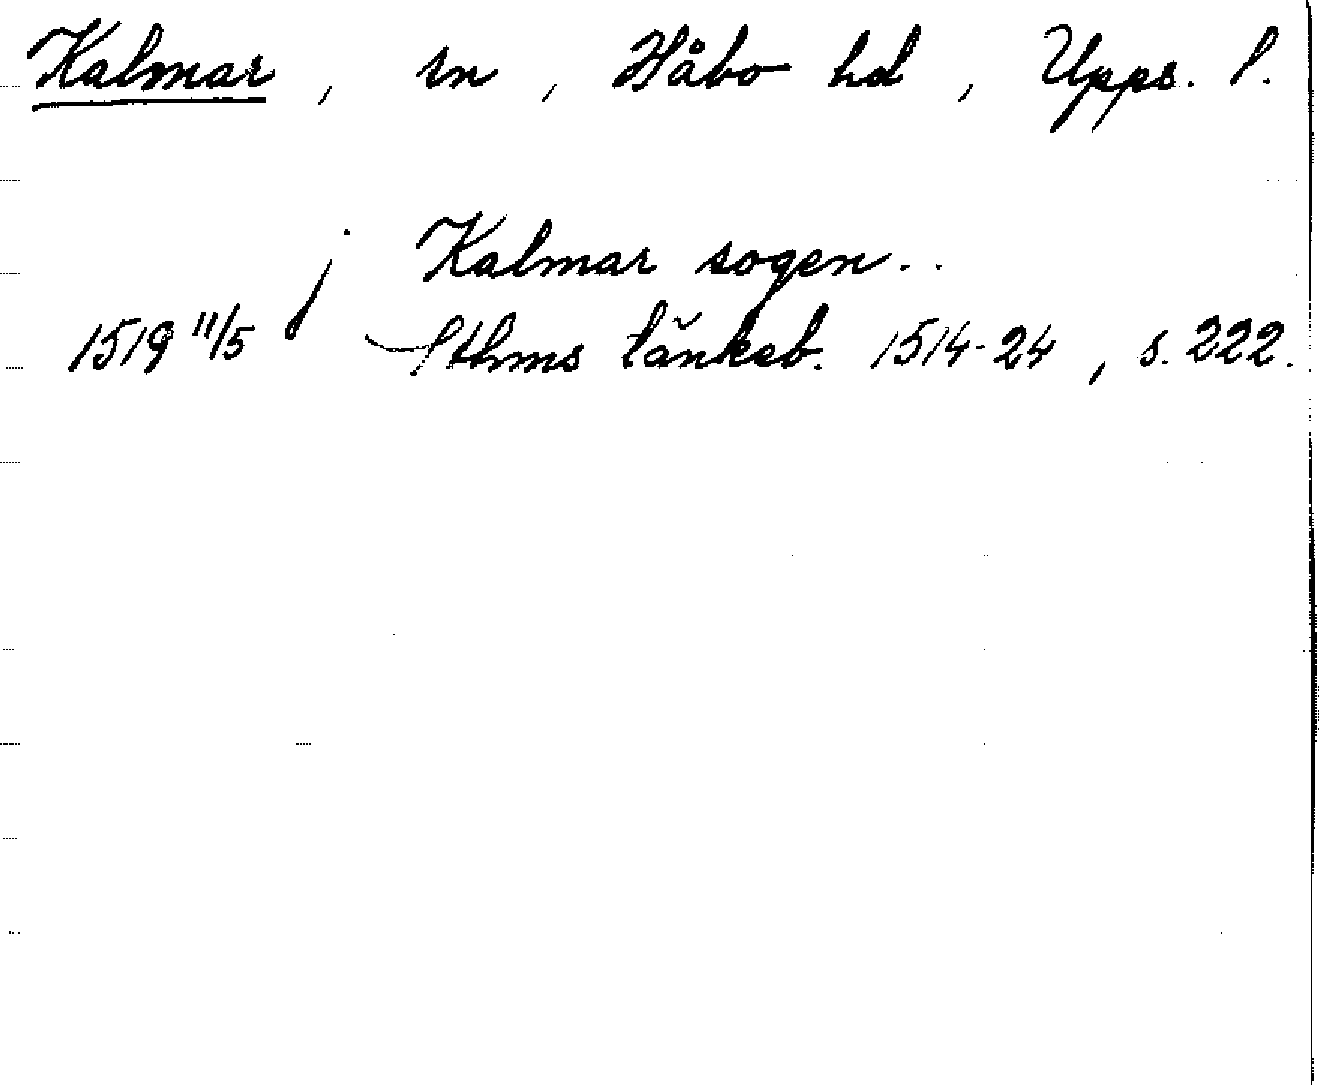 Kalmar, sn, Håbo hd, Upps. l.
j Kalmar sogen..
1519 11/5 Sthms tänkeb. 1514-24, s. 222.